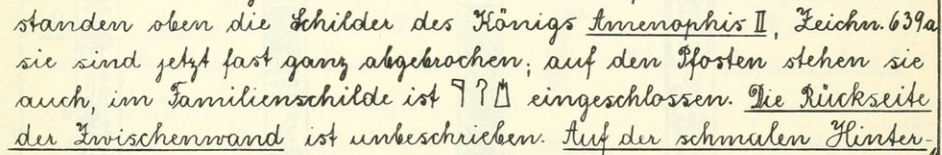 standen oben die Schilder des Königs Amenophis II, Zeichn. 639a
sie sind jetzt fast ganz abgebrochen; auf den Pfosten stehen sie
auch, im Familienschilde ist eingeschlossen. Die Rückseite
der Zwischenwand ist unbeschrieben. Auf der schmalen Hinter-